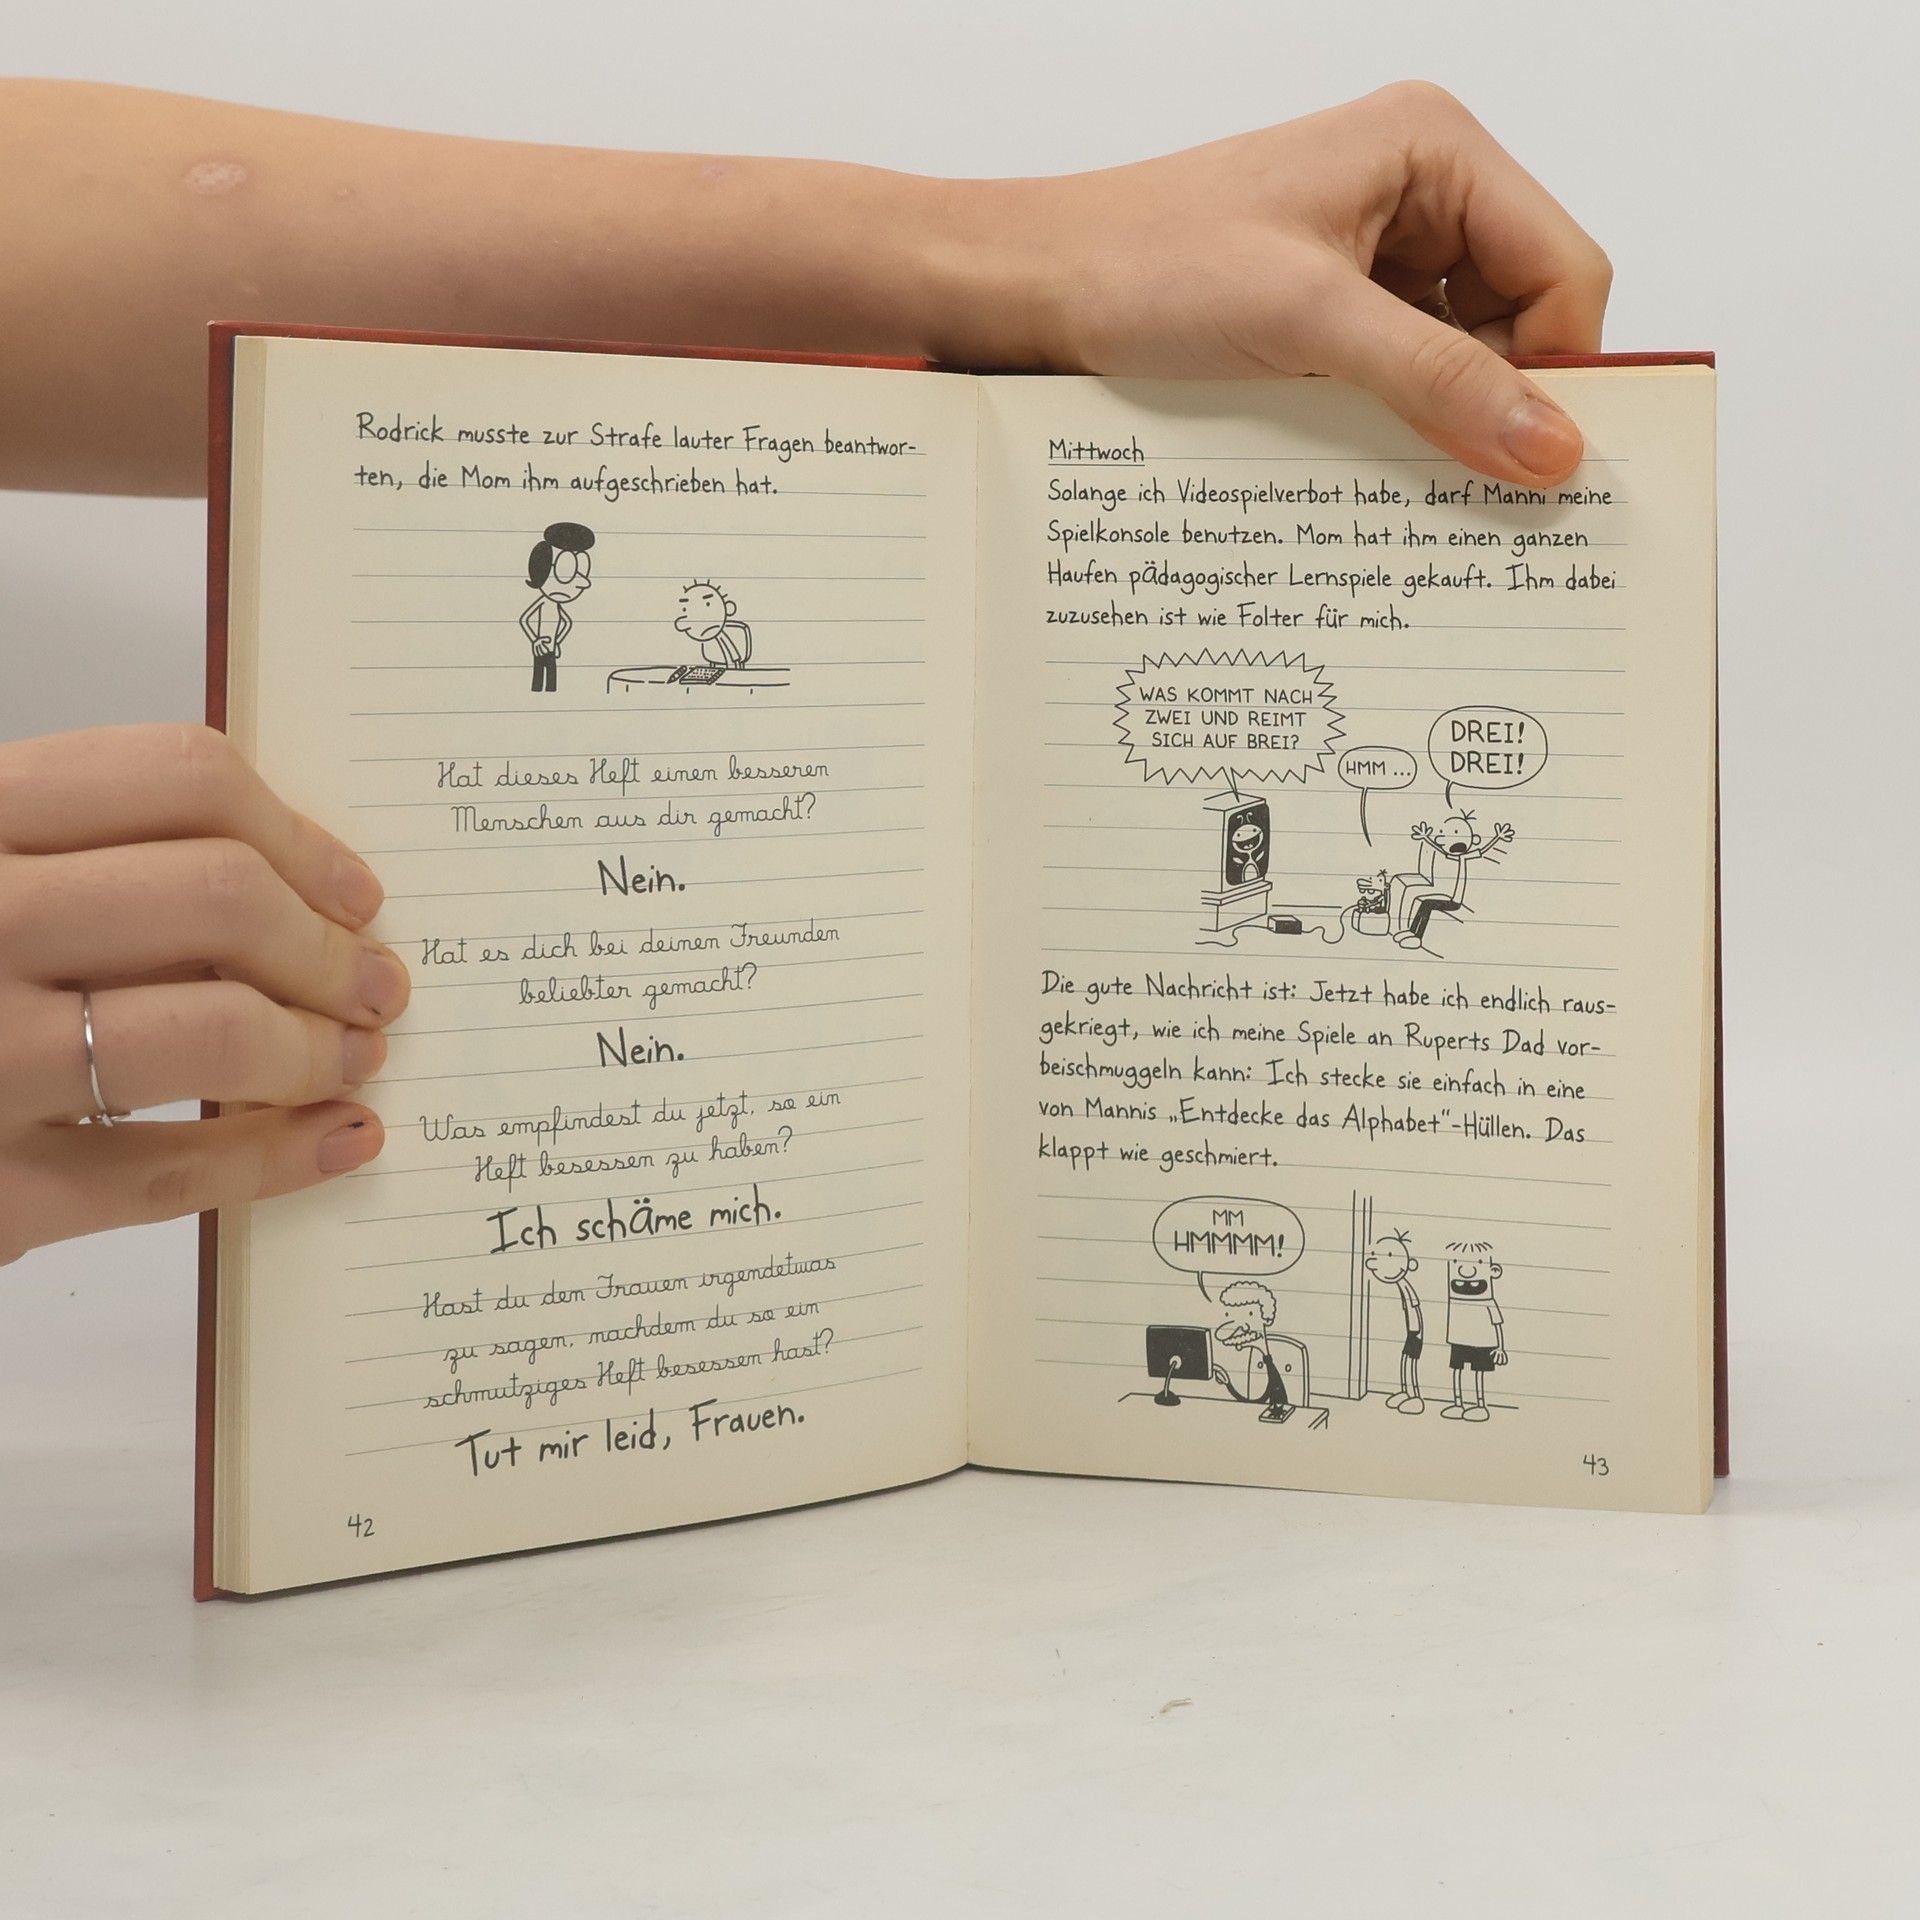 Rodrick musste zur Strafe lauter Fragen beantwor-
ten, die Mom ihm aufgeschrieben hat.
Hat dieses Heft einen besseren
Menschen aus dir gemacht?
Nein.
Hat es dich bei deinen Freunden
beliebter gemacht?
Nein.
Was empfindest du jetzt, so ein
Heft besessen zu haben?
Ich schäme mich.
Hast du den Frauen irgendetwas
zu sagen, nachdem du so ein
schmutziges Heft besessen hast?
Tut mir leid, Frauen.
42
Mittwoch
Solange ich Videospielverbot habe, darf Manni meine
Spielkonsole benutzen. Mom hat ihm einen ganzen
Haufen pädagogischer Lernspiele gekauft. Ihm dabei
zuzusehen ist wie Folter für mich.
WAS KOMMT NACH
ZWEI UND REIMT
SICH AUF BREI?
HMM ...
DREI!
DREI!
Die gute Nachricht ist: Jetzt habe ich endlich raus-
gekriegt, wie ich meine Spiele an Ruperts Dad vor-
beischmuggeln kann: Ich stecke sie einfach in eine
von Mannis „Entdecke das Alphabet"-Hüllen. Das
klappt wie geschmiert.
MM
HMMMM!
43